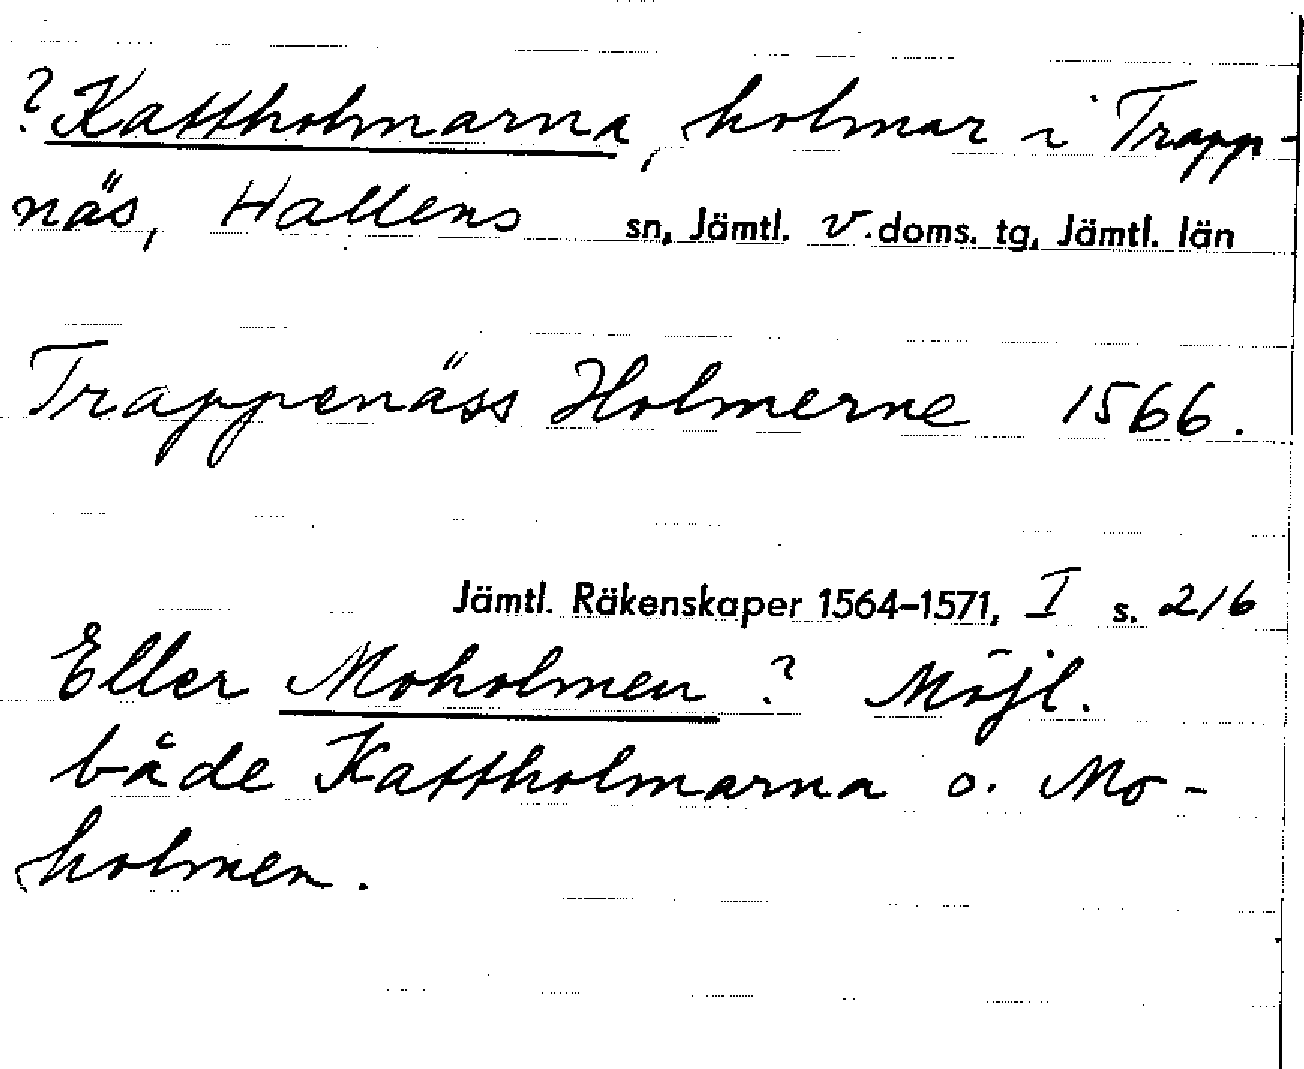 ? Kattholmarna, holmar i Trapp-
näs, Hallens sn, Jämtl. v. doms. tg, Jämtl. län
Trappenäss Holmerne 1566.
Jämtl. Räkenskaper 1564-1571, I s. 216
Eller Moholmen? Möjl.
både Kattholmarna o. Mo-
holmen.